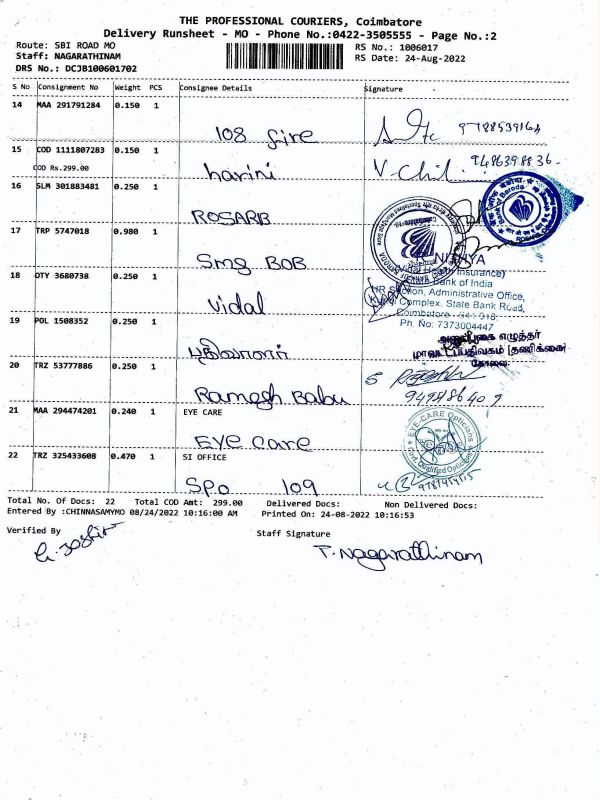 THE PROFESSIONAL COURIERS, Coimbatore
Delivery Runsheet - MO - Phone No.:0422-3505555 - Page No.:2
Route: SBI ROAD MO
Staff: NAGARATHINAM
DRS No.: DCJB100601702
RS No.: 1006017
RS Date: 24-Aug-2022
S No Consignment No Weight PCS Consignee Details Signature
14 MAA 291791284 0.150 1
108 fire
15 COD 1111807283 0.150 1
COD Rs.299.00
harini V-Chil
16 SLM 301883481 0.250 1
ROSARB
17 TRP 5747018 0.980 1
Smg BOB
18 OTY 3680738 0.250 1
Vidal
NIDHYA
Health Insurance)
Bank of India
HR Section, Administrative Office,
Complex, State Bank Road,
Coimbatore
Ph. No: 7373004447
19 POL 1508352 0.250 1
எழுத்தர்
(தணிக்கை)
கோவை.
20 TRZ 53777886 0.250 1
Ramesh Babu
21 MAA 294474201 0.240 1 EYE CARE
Eye care
EYE-CARE Opticians
Govt. Qualified Opticians
22 TRZ 325433608 0.470 1 SI OFFICE
S.P.o 109
Total No. Of Docs: 22 Total COD Amt: 299.00 Delivered Docs: Non Delivered Docs:
Entered By :CHINNASAMYMO 08/24/2022 10:16:00 AM Printed On: 24-08-2022 10:16:53
Verified By
Staff Signature
T. Nagarathinam